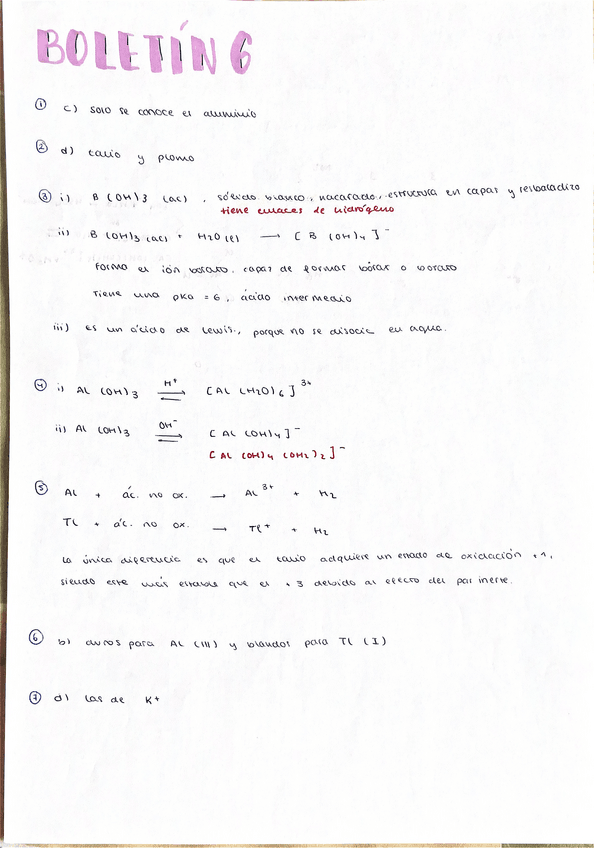 BOLETÍN 6
① c) solo se conoce el aluminio
② d) talio y plomo
③ i) B(OH)3 (ac), sólido blanco, nacarado, estructura en capas y resbaladizo
tiene enlaces de hidrógeno
ii) B(OH)3 (ac) + H2O (l) → [B(OH)4]⁻
Forma el ión borato. capaz de formar bórax o borato
Tiene una pKa = 6, ácido intermedio
iii) es un ácido de Lewis, porque no se disocia en agua.
④ i) Al(OH)3 ⇌ H⁺ [Al(H2O)6]³⁺
ii) Al(OH)3 ⇌ OH⁻ [Al(OH)4]⁻
[Al(OH)4(OH2)2]⁻
⑤ Al + ác. no ox. → Al³⁺ + H2
Tl + ác. no ox. → Tl⁺ + H2
La única diferencia es que el talio adquiere un estado de oxidación +1,
siendo este más estable que el +3 debido al efecto del par inerte.
⑥ b) duros para Al(III) y blandos para Tl(I)
⑦ d) las de K⁺